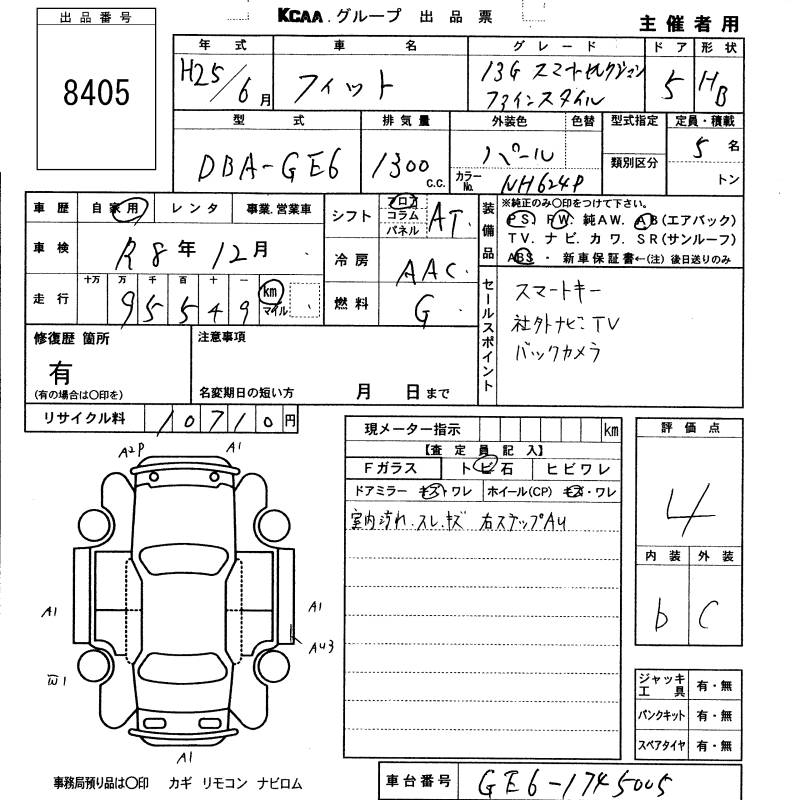 出品番号
8405
KCAA.グループ 出品票
主催者用
年式
H25/6月
車名
フィット
グレード
13G スマートセレクション
ファインスタイル
ドア
5
形状
HB
型式
DBA-GE6
排気量
1300 c.c.
外装色
パール
色替
カラーNo. NH624P
型式指定
類別区分
定員・積載
5名
トン
車歴 自家用 レンタ 事業.営業車
車検 R8年12月
走行 十万 万 千 百 十 一
95549 km マイル
シフト フロア コラム パネル AT
冷房 AAC
燃料 G
装備品
※純正のみ〇印をつけて下さい。
PS. PW. 純AW. AB(エアバック)
TV. ナビ. カワ. SR(サンルーフ)
ABS ・ 新車保証書←(注) 後日送りのみ
セールスポイント
スマートキー
社外ナビ:TV
バックカメラ
修復歴 箇所
有
(有の場合は〇印を)
注意事項
名変期日の短い方 月 日まで
リサイクル料 10710円
現メーター指示 km
【査定員記入】
Fガラス トビ石 ヒビワレ
ドアミラー キズ・ワレ ホイール(CP) キズ・ワレ
室内汚れ.スレ.キズ 右ステップAU
評価点
4
内装 外装
b C
A2P A1
A1 A1
AU3
W1
A1
ジャッキ工具 有・無
パンクキット 有・無
スペアタイヤ 有・無
事務局預り品は〇印 カギ リモコン ナビロム
車台番号 GE6-1745005